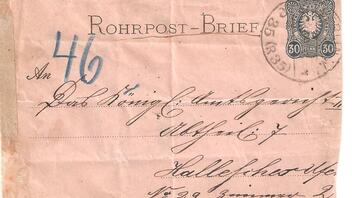 ROHRPOST-BRIEF
30 30
46
An
Das Königl: Amtsgericht
Abtheil: 7
Hallesches Ufer
No 29 Zimmer 2